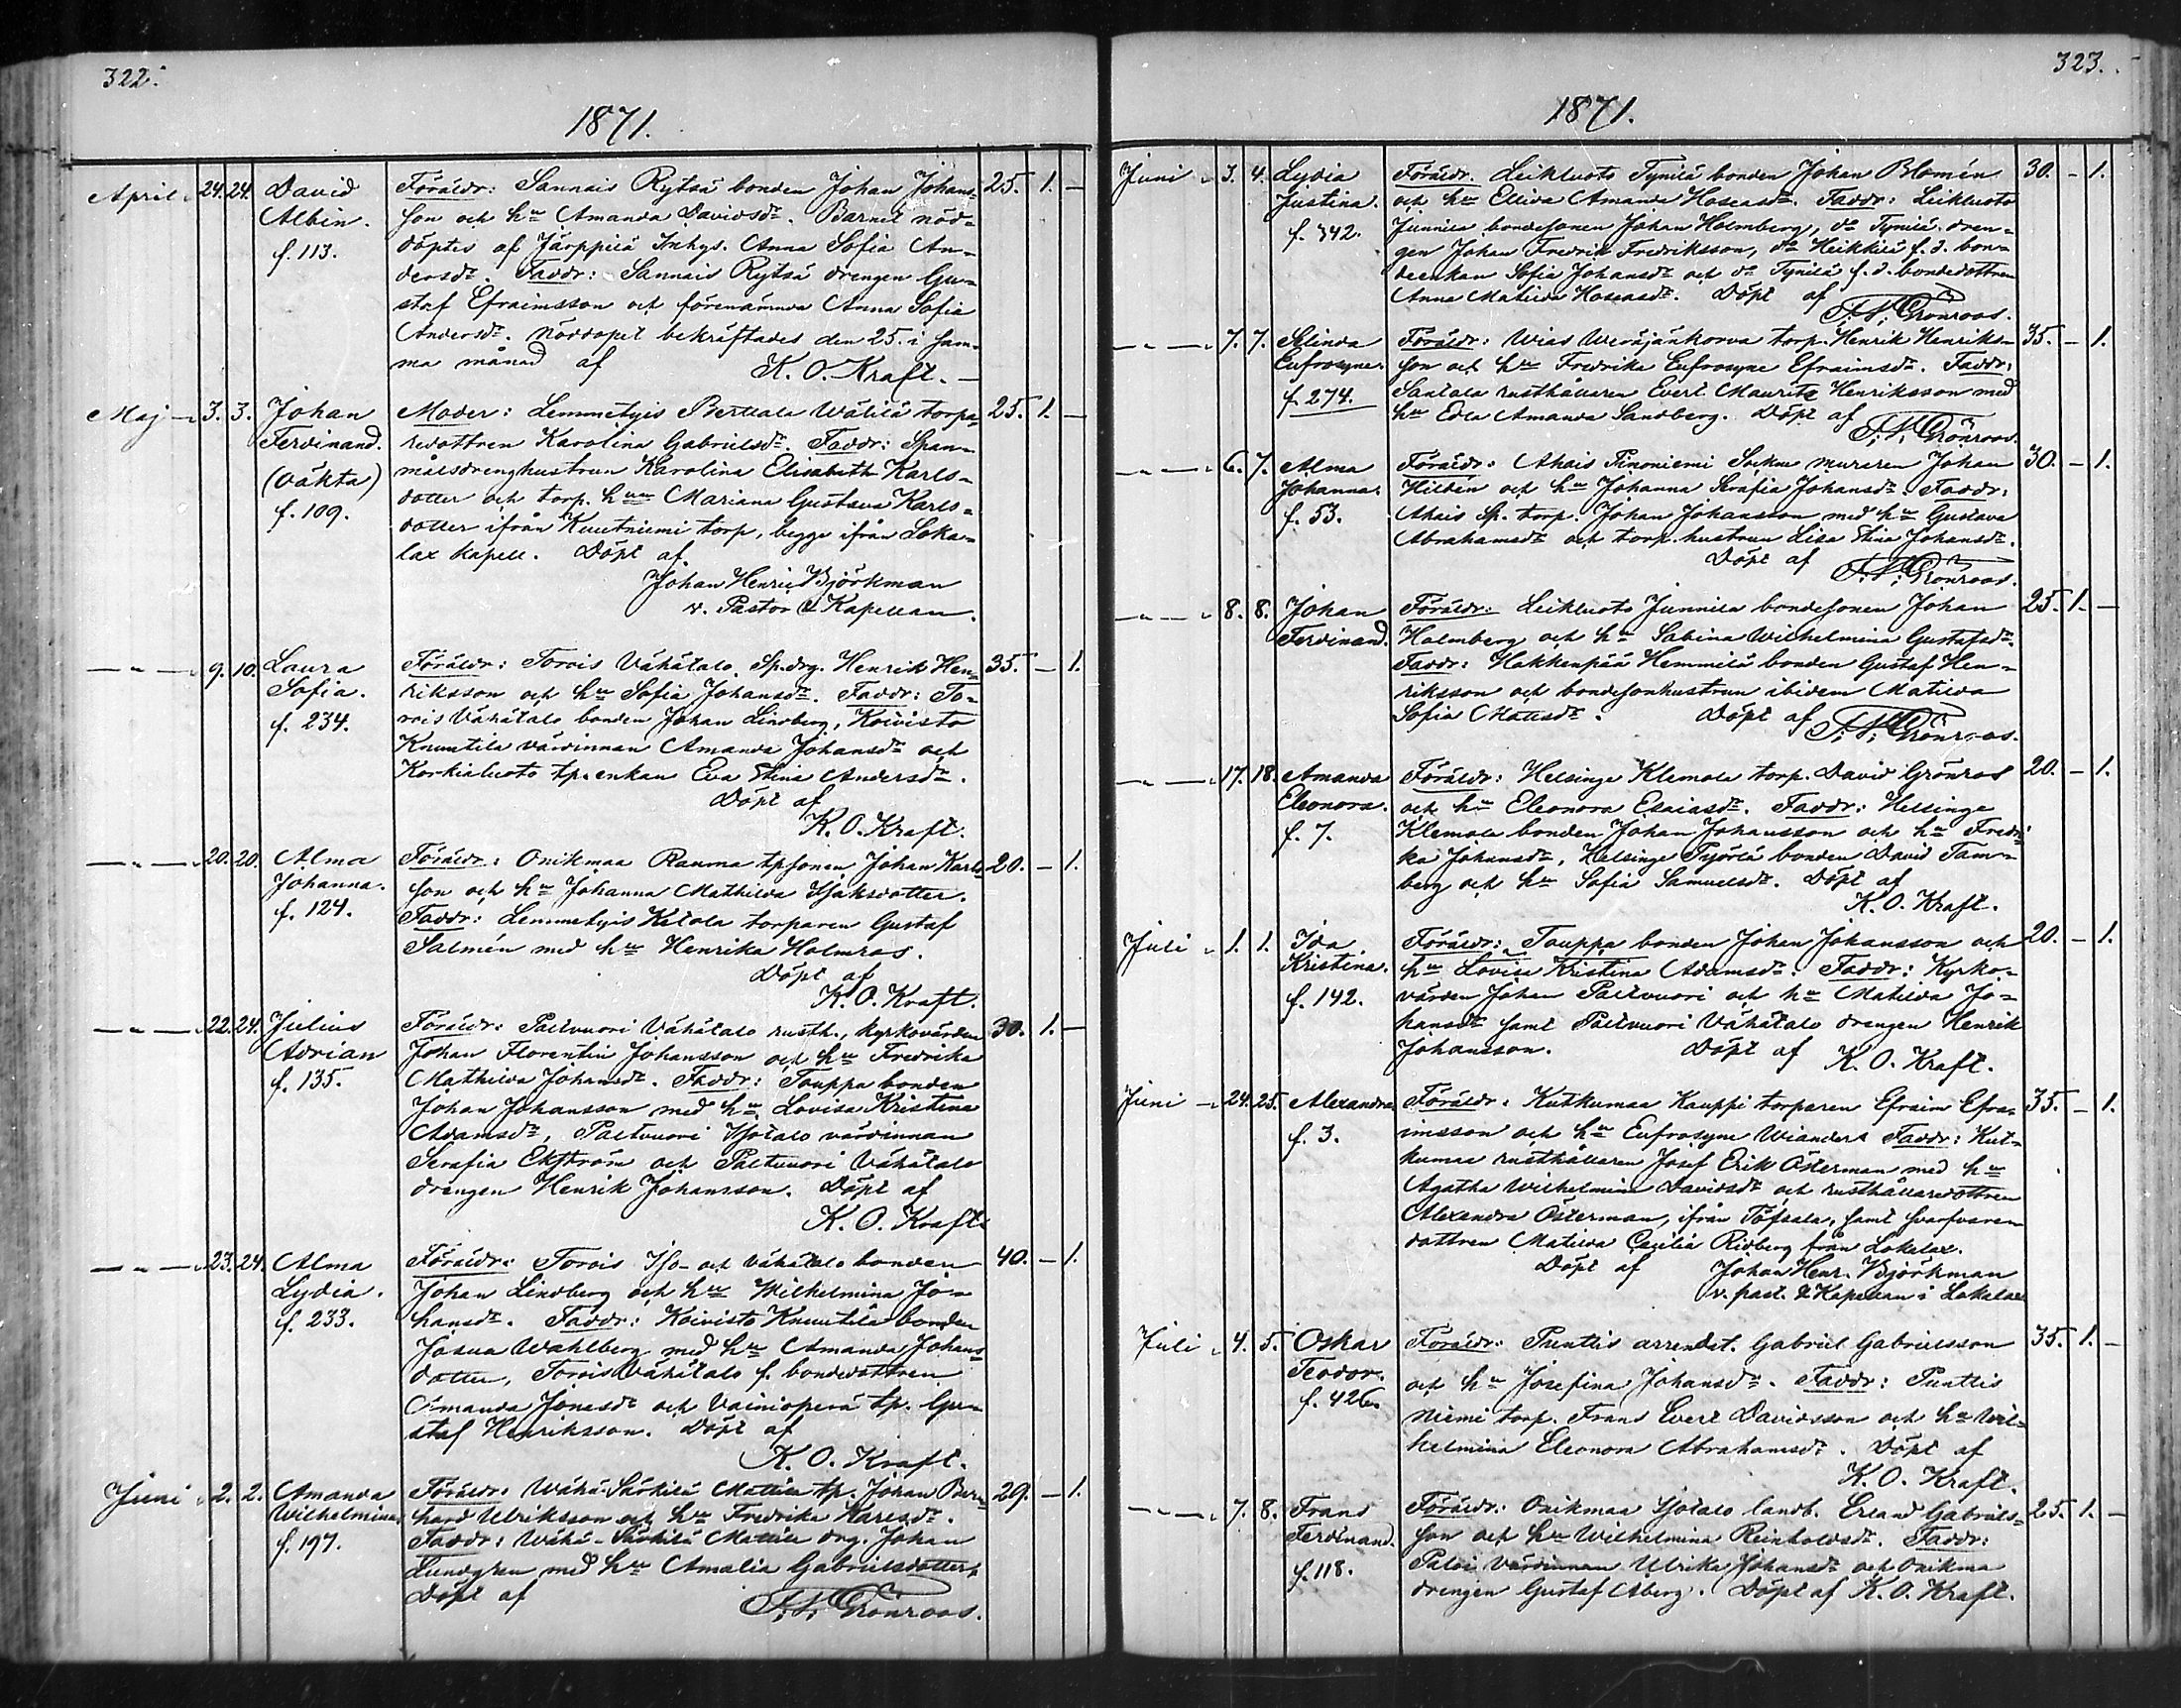 322.
1871.
April " 24. 24. David Föräldr: Sannais Rytsä bonden Johan Johans- 25. 1. –
Albin. son och hu Amanda Davidsdr. Barnet nöd-
f. 113. döptes af Järppilä Inhys. Anna Sofia An-
dersdr. Faddr: Sannais Rytsä drengen Gu-
staf Efraimsson och förenämnda Anna Sofia
Andersdr. Nöddopet bekräftades den 25. i sam-
ma månad af K. O. Kraft. –
Maj " 3. 3. Johan Moder: Lemmetyis Berttala Wälilä torpa- 25. 1. –
Ferdinand. redottren Karolina Gabrielsdr. Faddr: Span-
(oäkta) målsdrenghustrun Karolina Elisabeth Karls-
f. 109. dotter och torp. hun Mariana Gustava Karls-
dotter ifrån Knutniemi torp, begge ifrån Loka-
lax kapell. Döpt af
Johan Henric Björkman
v. Pastor & Kapellan.
— " — " 9. 10. Laura Föräldr: Torois Vähätalo Sp.drg. Henrik Hen- 35. – 1.
Sofia. riksson och hu Sofia Johansdr. Faddr: To-
f. 234. rois Vähätalo bonden Johan Lindberg, Koivisto
Knuutila värdinnan Amanda Johansdr och
Korkialuoto tp.enkan Eva Stina Andersdr.
Döpt af
K. O. Kraft.
— " — 20. 20. Alma Föräldr: Onikmaa Rauma tpsonen Johan Karls- 20. – 1.
Johanna. son och hu Johanna Mathilda Isaksdotter.
f. 124. Faddr: Lemmetyis Ketola torparen Gustaf
Salmén med hu Henrika Holmros.
Döpt af
K. O. Kraft.
— " — 22. 24. Julius Föräldr: Paltvuori Vähätalo rusth., kyrkovärden 30. 1. –
Adrian Johan Florentin Johansson och hu Fredrika
f. 135. Mathilda Johansdr. Faddr: Tauppa bonden
Johan Johansson med hu Lovisa Kristina
Adamsdr, Paltvuori Isotalo värdinnan
Serafia Ekström och Paltvuori Vähätalo
drengen Henrik Johansson. Döpt af
K. O. Kraft.
— " — " 23. 24. Alma Föräldr: Torois Iso- och Vähätalo bonden 40. – 1.
Lydia. Johan Lindberg och hu Wilhelmina Jo-
f. 233. hansdr. Faddr: Koivisto Knuutila bonden
Josua Wahlberg med hu Amanda Johans-
dotter, Torois Vähätalo f. bondedottren
Amanda Jonasdr och Vainioperä tp. Gu-
staf Henriksson. Döpt af
K. O. Kraft.
Juni " 2. 2. Amanda Föräldr: Wähä-Särkilä Mattila tp. Johan Bern- 29. – 1.
Wilhelmina. hard Ulriksson och hu Fredrika Karlsdr.
f. 197. Faddr: Wähä-Särkilä Mattila drg. Johan
Lundgren med hu Amalia Gabrielsdotter.
Döpt af F. N. Grönroos.
323.
1871.
Juni " 3. 4. Lydia Föräldr. Leikluoto Tynilä bonden Johan Blomén 30. – 1.
Justina. och hu Elliva Amanda Hoseasdr. Faddr: Leikluoto
f. 342. Junnila bondesonen Johan Holmberg, do Tynilä dren-
gen Johan Fredrik Fredriksson, do Heikkilä f. d. bon-
deenkan Sofia Johansdr och do Tynilä f. d. bondedottren
Anna Matilda Hoseasdr. Döpt af
F. N. Grönroos.
— " — " 7. 7. Selinda Föräldr: Wias Weräjänkorva torp. Henrik Henriks- 35. – 1.
Eufrosyne. son och hu Fredrika Eufrosyne Efraimsdr. Faddr:
f. 274. Santala rusthållaren Evert Mauritz Henriksson med
hu Edla Amanda Sandberg. Döpt af
F. N. Grönroos.
— " — " 6. 7. Alma Föräldr: Ahais Pinoniemi Socken muraren Johan 30. – 1.
Johanna. Hildén och hu Johanna Serafia Johansdr. Faddr:
f. 53. Ahais Sp. torp. Johan Johansson med hu Gustava
Abrahamsdr och torp.hustrun Lisa Stina Johansdr.
Döpt af F. N. Grönroos.
— " — " 8. 8. Johan Föräldr: Leikluoto Junnila bondesonen Johan 25. 1. –
Ferdinand. Holmberg och hu Sabina Wilhelmina Gustafsdr.
Faddr: Hakkenpää Hemmilä bonden Gustaf Hen-
riksson och bondesonhustrun ibidem Matilda
Sofia Matsdr. Döpt af
F. N. Grönroos.
— " — " 17. 18. Amanda Föräldr: Helsinge Klemola torp. David Grönros 20. – 1.
Eleonora. och hu Eleonora Esaiasdr. Faddr: Helsinge
f. 7. Klemola bonden Johan Johansson och hu Fredri-
ka Johansdr, Helsinge Pyörlä bonden David Tam-
berg och hu Sofia Samuelsdr. Döpt af
K. O. Kraft.
Juli " 1. 1. Ida Föräldr: Tauppa bonden Johan Johansson och 20. – 1.
Kristina. hu Lovisa Kristina Adamsdr. Faddr: Kyrko-
f. 142. värden Johan Paltvuori och hu Matilda Jo-
hansdr samt Paltvuori Vähätalo drengen Henrik
Johansson. Döpt af K. O. Kraft.
Juni " 24. 25. Alexandra Föräldr: Kutkumaa Kauppi torparen Efraim Efra- 35. – 1.
f. 3. imsson och hu Eufrosyne Wiander. Faddr: Kut-
kumaa rusthållaren Josef Erik Österman med hu
Agatha Wilhelmina Davidsdr och rusthållaredottren
Alexandra Österman, ifrån Töfsala, samt svarfvaren
dottren Matilda Cecilia Ridberg från Lokalax.
Döpt af Johan Henr. Björkman
v. past. & Kapellan i Lokalax
Juli " 4. 5. Oskar Föräldr: Punttis arrendat. Gabriel Gabrielsson 35. 1. –
Teodor. och hu Josefina Johansdr. Faddr: Punttis
f. 426. Niemi torp. Frans Evert Davidsson och hu Wil-
helmina Eleonora Abrahamsdr. Döpt af
K. O. Kraft.
— " — " 7. 8. Frans Föräldr: Onikmaa Isotalo landb. Erland Gabriels- 25. 1. –
Ferdinand. son och hu Wilhelmina Reinholdsdr. Faddr:
f. 118. Paloi värdinnan Ulrika Johansdr och Onikma
drengen Gustaf Åberg. Döpt af K. O. Kraft.